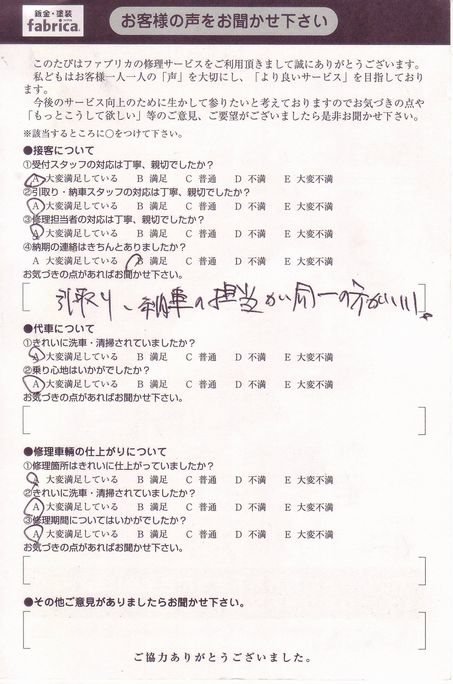 鈑金・塗装
fabrica.
お客様の声をお聞かせ下さい
このたびはファブリカの修理サービスをご利用頂きまして誠にありがとうございます。
私どもはお客様一人一人の「声」を大切にし、「より良いサービス」を目指しており
ます。
今後のサービス向上のために生かして参りたいと考えておりますのでお気づきの点や
「もっとこうして欲しい」等のご意見、ご要望がございましたら是非お聞かせ下さい。
※該当するところに○をつけて下さい。
●接客について
①受付スタッフの対応は丁寧、親切でしたか?
A 大変満足している B 満足 C 普通 D 不満 E 大変不満
②引取り・納車スタッフの対応は丁寧、親切でしたか?
A 大変満足している B 満足 C 普通 D 不満 E 大変不満
③修理担当者の対応は丁寧、親切でしたか?
A 大変満足している B 満足 C 普通 D 不満 E 大変不満
④納期の連絡はきちんとありましたか?
A 大変満足している B 満足 C 普通 D 不満 E 大変不満
お気づきの点があればお聞かせ下さい。
引取り、納車の担当が同一の方がいい。
●代車について
①きれいに洗車・清掃されていましたか?
A 大変満足している B 満足 C 普通 D 不満 E 大変不満
②乗り心地はいかがでしたか?
A 大変満足している B 満足 C 普通 D 不満 E 大変不満
お気づきの点があればお聞かせ下さい。
●修理車輌の仕上がりについて
①修理箇所はきれいに仕上がっていましたか?
A 大変満足している B 満足 C 普通 D 不満 E 大変不満
②きれいに洗車・清掃されていましたか?
A 大変満足している B 満足 C 普通 D 不満 E 大変不満
③修理期間についてはいかがでしたか?
A 大変満足している B 満足 C 普通 D 不満 E 大変不満
お気づきの点があればお聞かせ下さい。
●その他ご意見がありましたらお聞かせ下さい。
ご協力ありがとうございました。